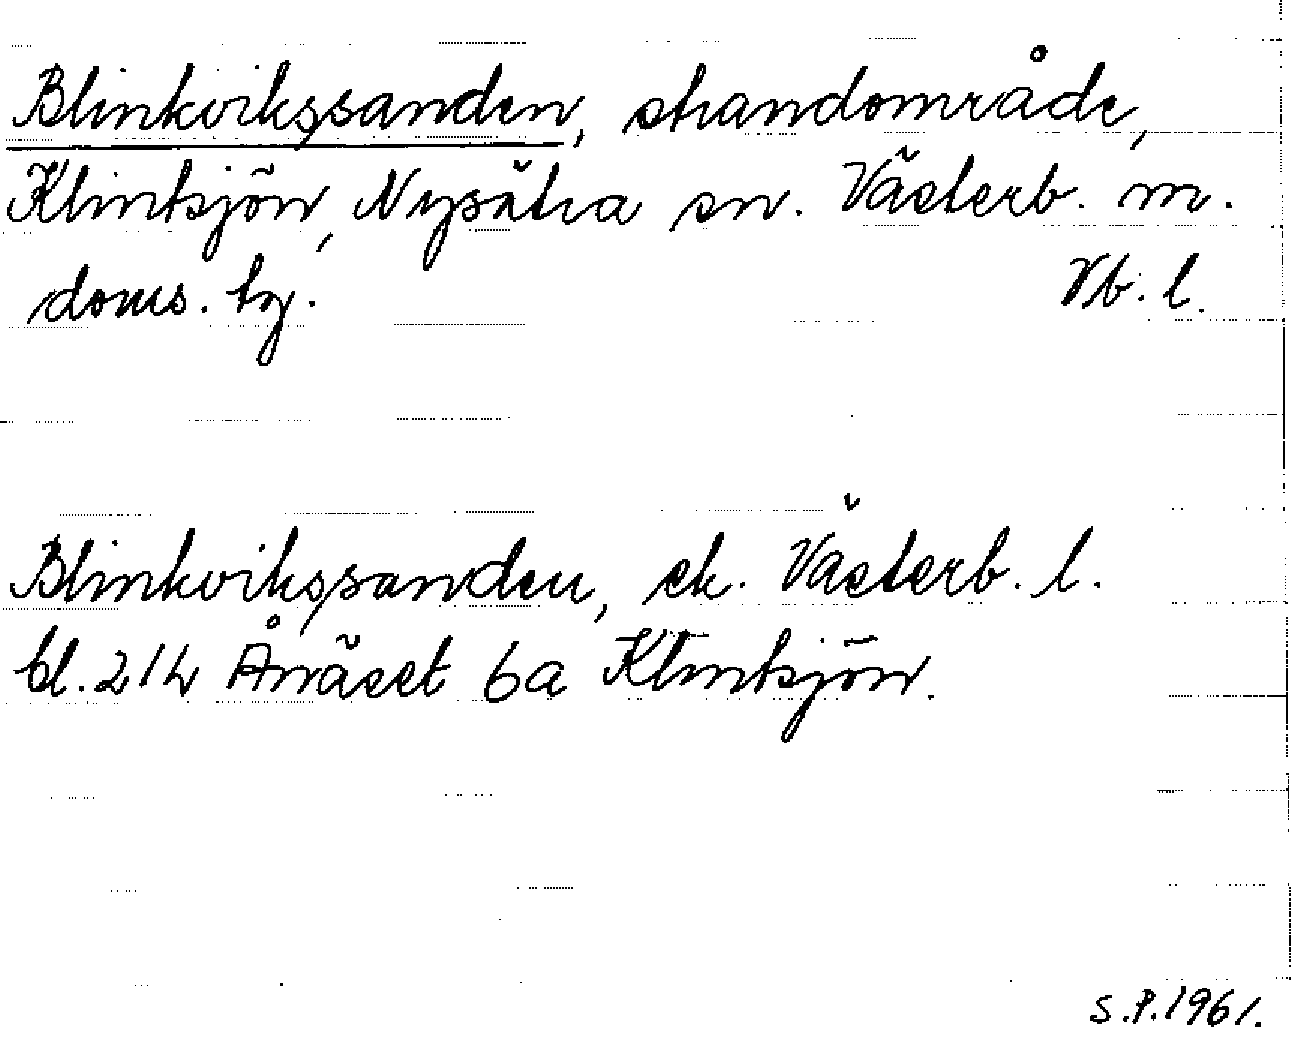 Blinkvikssanden, strandområde,
Klintsjön, Nysätra sn. Västerb. m.
doms. tg. Vb. l.
Blinkvikssanden, ek. Västerb. l.
bl. 214 Ånäset 6a Klintsjön.
S.P. 1961.